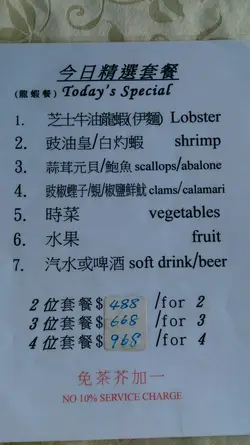 今日精選套餐
(龍蝦餐) Today's Special
1. 芝士牛油龍蝦(伊麵) Lobster
2. 豉油皇/白灼蝦 shrimp
3. 蒜茸元貝/鮑魚 scallops/abalone
4. 豉椒蟶子/蜆/椒鹽鮮魷 clams/calamari
5. 時菜 vegetables
6. 水果 fruit
7. 汽水或啤酒 soft drink/beer
2位套餐$ 488 /for 2
3位套餐$ 668 /for 3
4位套餐$ 968 /for 4
免茶芥加一
NO 10% SERVICE CHARGE